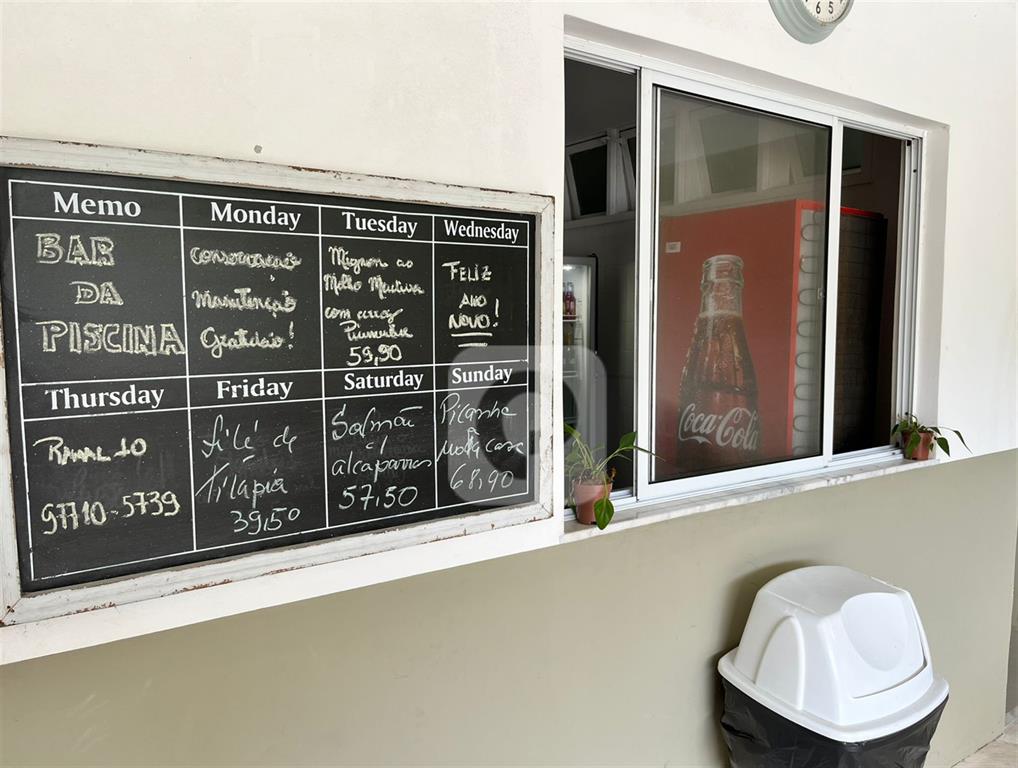 6 5
Memo
BAR
DA
PISCINA
Monday
conservação
Manutenção
Gratidão!
Tuesday
Mignon ao
Molho
com arroz
59,90
Wednesday
FELIZ
ANO
NOVO!
Thursday
RAMAL 10
97710-5739
Friday
filé de
tilápia
39,50
Saturday
Salmão
c/
alcaparras
57,50
Sunday
Picanha
68,90
Coca-Cola